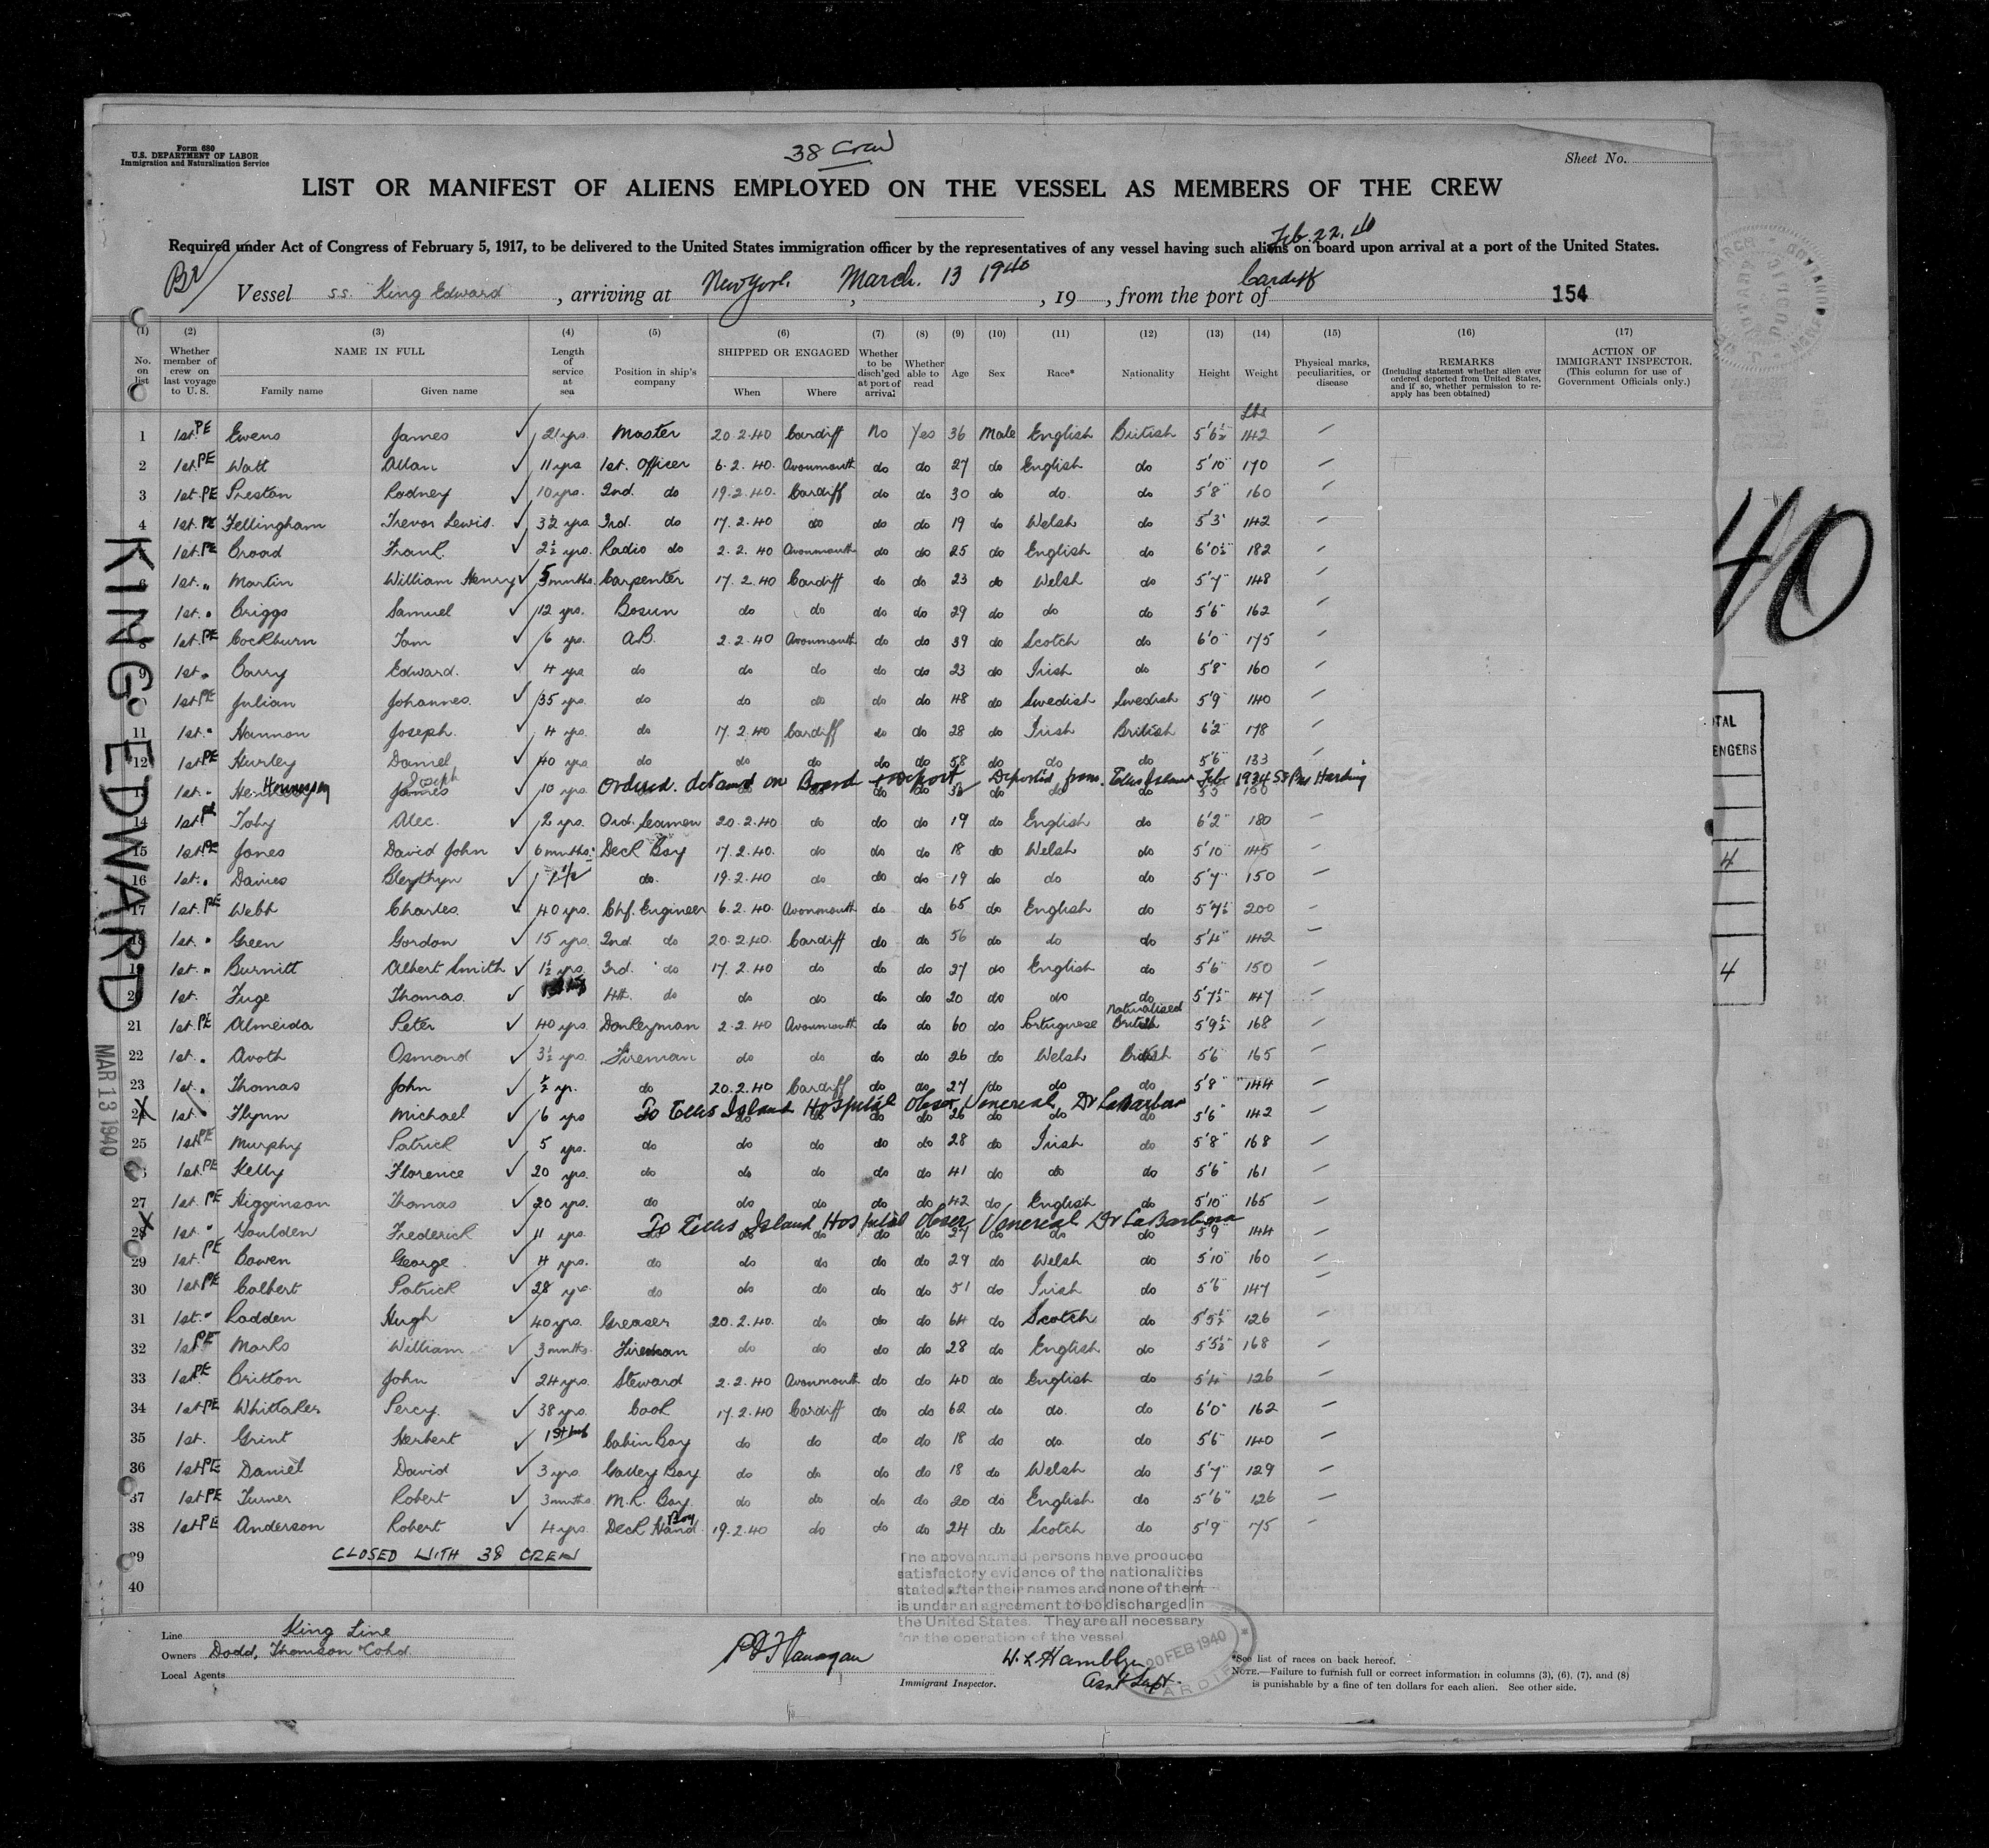 Form 680
U.S. DEPARTMENT OF LABOR
Immigration and Naturalization Service
38 Crew
Sheet No.
LIST OR MANIFEST OF ALIENS EMPLOYED ON THE VESSEL AS MEMBERS OF THE CREW
Feb. 22. 40
Required under Act of Congress of February 5, 1917, to be delivered to the United States immigration officer by the representatives of any vessel having such aliens on board upon arrival at a port of the United States.
Br
Vessel s.s. "King Edward", arriving at New York. March. 13 1940, 19 , from the port of Cardiff 154
(1) (2) (3) (4) (5) (6) (7) (8) (9) (10) (11) (12) (13) (14) (15) (16) (17)
No. on list
Whether member of crew on last voyage to U. S.
NAME IN FULL
Family name Given name
Length of service at sea
Position in ship's company
SHIPPED OR ENGAGED
When Where
Whether to be disch'ged at port of arrival
Whether able to read
Age
Sex
Race*
Nationality
Height
Weight
Physical marks, peculiarities, or disease
REMARKS
(Including statement whether alien ever ordered deported from United States, and if so, whether permission to reapply has been obtained)
ACTION OF IMMIGRANT INSPECTOR.
(This column for use of Government Officials only.)
Lbs
1 1st. PE Ewens James ✓ 21 yrs. Master 20.2.40 Cardiff No Yes 36 Male English British 5'6½" 142 –
2 1st. PE Watt Allan ✓ 11 yrs 1st. Officer 6.2.40. Avonmouth do do 27 do English do 5'10" 170 –
3 1st. PE Preston Rodney ✓ 10 yrs. 2nd. do 19.2.40. Cardiff do do 30 do do. do 5'8" 160 –
4 1st. PE Fellingham Trevor Lewis. ✓ 3½ yrs. 3rd. do 17.2.40 do do do 19 do Welsh do 5'3" 142 –
1st. PE Croad Frank. ✓ 2½ yrs. Radio do 2.2.40 Avonmouth do do 25 do English do 6'0½" 182 –
6 1st. " Martin William Henry ✓ mnths. Carpenter 17.2.40 Cardiff do do 23 do Welsh do 5'7" 148 –
1st. " Griggs Samuel ✓ 12 yrs. Bosun do do do do 29 do do do 5'6" 162 –
8 1st. PE Cockburn Tom ✓ 6 yrs. A.B. 2.2.40 Avonmouth do do 39 do Scotch do 6'0" 175 –
9 1st. " Carry Edward. ✓ 4 yrs do do do do do 23 do Irish do 5'8" 160 –
1st. PE Julian Johannes. ✓ 35 yrs. do do do do do 48 do Swedish Swedish 5'9" 140 –
11 1st. " Hannon Joseph. ✓ 4 yrs. do 17.2.40 Cardiff do do 28 do Irish British 6'2" 178 –
12 1st. PE Hurley Daniel ✓ 40 yrs do do do do do 58 do do do 5'6" 133 –
13 1st. " Hennessy Joseph 10 yrs. Ordered. detained on Board & deport Deported from. Ellis Island Feb 1934 SS Pres Harding
14 1st. PE Toby Alec. ✓ 2 yrs. Ord. Seaman 20.2.40 do do do 19 do English do 6'2" 180 –
15 1st. PE Jones David John ✓ 6 mnths. Deck Boy 17.2.40. do do do 18 do Welsh do 5'10" 145 –
16 1st. " Davies Blegthyn ✓ 1½ do. 19.2.40 do do do 19 do do do 5'7" 150 –
17 1st. PE Webb Charles. ✓ 40 yrs. Chf. Engineer 6.2.40. Avonmouth do do 65 do English do 5'7½" 200 –
18 1st. " Green Gordon ✓ 15 yrs. 2nd do 20.2.40. Cardiff do do 56 do do do 5'4" 142 –
19 1st. " Burnitt Albert Smith ✓ 1½ yrs. 3rd. do 17.2.40 do do do 27 do English do 5'6" 150 –
1st. Fuge Thomas. ✓ 4th. do do do do do 20 do do do 5'7½" 147 –
21 1st. PE Almeida Peter ✓ 40 yrs. Donkeyman 2.2.40 Avonmouth do do 60 do Portuguese Naturalised British 5'9½" 168 –
22 1st. " Avoth Osmond ✓ 3½ yrs. Fireman do do do do 26 do Welsh British 5'6" 165 –
23 1st. " Thomas John ✓ ½ yr. do 20.2.40 Cardiff do do 27 do do do 5'8" 144 –
X 24 1st. " Flynn Michael ✓ 6 yrs To Ellis Island Hospital Obser. Venereal, Dr LaBarbera do do 26 do do do 5'6" 142 –
25 1st. PE Murphy Patrick ✓ 5 yrs. do do do do do 28 do Irish do 5'8" 168 –
1st. PE Kelly Florence ✓ 20 yrs. do do do do do 41 do do do 5'6" 161 –
27 1st. PE Higginson Thomas ✓ 20 yrs. do do do do do 42 do English do 5'10" 165 –
X 28 1st. " Goulden Frederick ✓ 11 yrs. To Ellis Island Hospital Obser Venereal Dr LaBarbera do do 27 do do do 5'9" 144 –
29 1st. PE Bowen George ✓ 4 yrs. do do do do do 29 do Welsh do 5'10" 160 –
30 1st. PE Colbert Patrick ✓ 28 yrs. do do do do do 51 do Irish do 5'6" 147 –
31 1st. " Ladden Hugh ✓ 40 yrs. Greaser 20.2.40. do do do 64 do Scotch do 5'5½" 126 –
32 1st. PE Marks William ✓ 3 mnths. Fireman do do do do 28 do English do 5'5½" 168 –
33 1st. PE Britton John ✓ 24 yrs. Steward 2.2.40 Avonmouth do do 40 do English do 5'4" 126 –
34 1st. PE Whittaker Percy. ✓ 38 yrs. Cook 17.2.40 Cardiff do do 62 do do. do 6'0" 162 –
35 1st. Grint Herbert ✓ Cabin Boy do do do do 18 do do. do 5'6" 140 –
36 1st. PE Daniel David ✓ 3 yrs. Galley Boy do do do do 18 do Welsh do 5'7" 129 –
37 1st. PE Turner Robert ✓ 3 mnths. M.R. Boy. do do do do 20 do English do 5'6" 126 –
38 1st. PE Anderson Robert ✓ 4 yrs. Deck Hand Boy 19.2.40 do do do 24 do Scotch do 5'9" 175 –
39 CLOSED WITH 38 CREW
40
KING EDWARD
MAR 13 1940
40
TOTAL
PASSENGERS
4
4
The above named persons have produced
satisfactory evidence of the nationalities
stated after their names and none of them
is under an agreement to be discharged in
the United States. They are all necessary
for the operation of the vessel
20 FEB 1940
CARDIFF
Line King Line
Owners Dodd, Thomson & Co Ltd.
Local Agents
P F Flanagan
W. L. Hamblyn
Asst Supt.
Immigrant Inspector.
*See list of races on back hereof.
NOTE.—Failure to furnish full or correct information in columns (3), (6), (7), and (8)
is punishable by a fine of ten dollars for each alien. See other side.